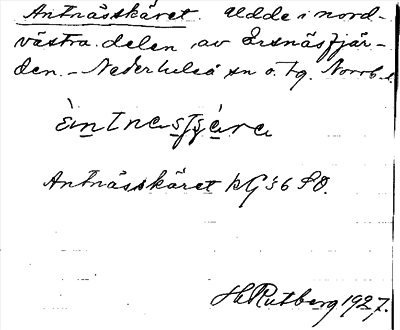 Antnässkäret. Udde i nord-
västra delen av Ersnäsfjär-
den. - Nederluleå sn o. tg. Norrb.
Antnässkäret kG 36 SO.
H Rutberg 1927.